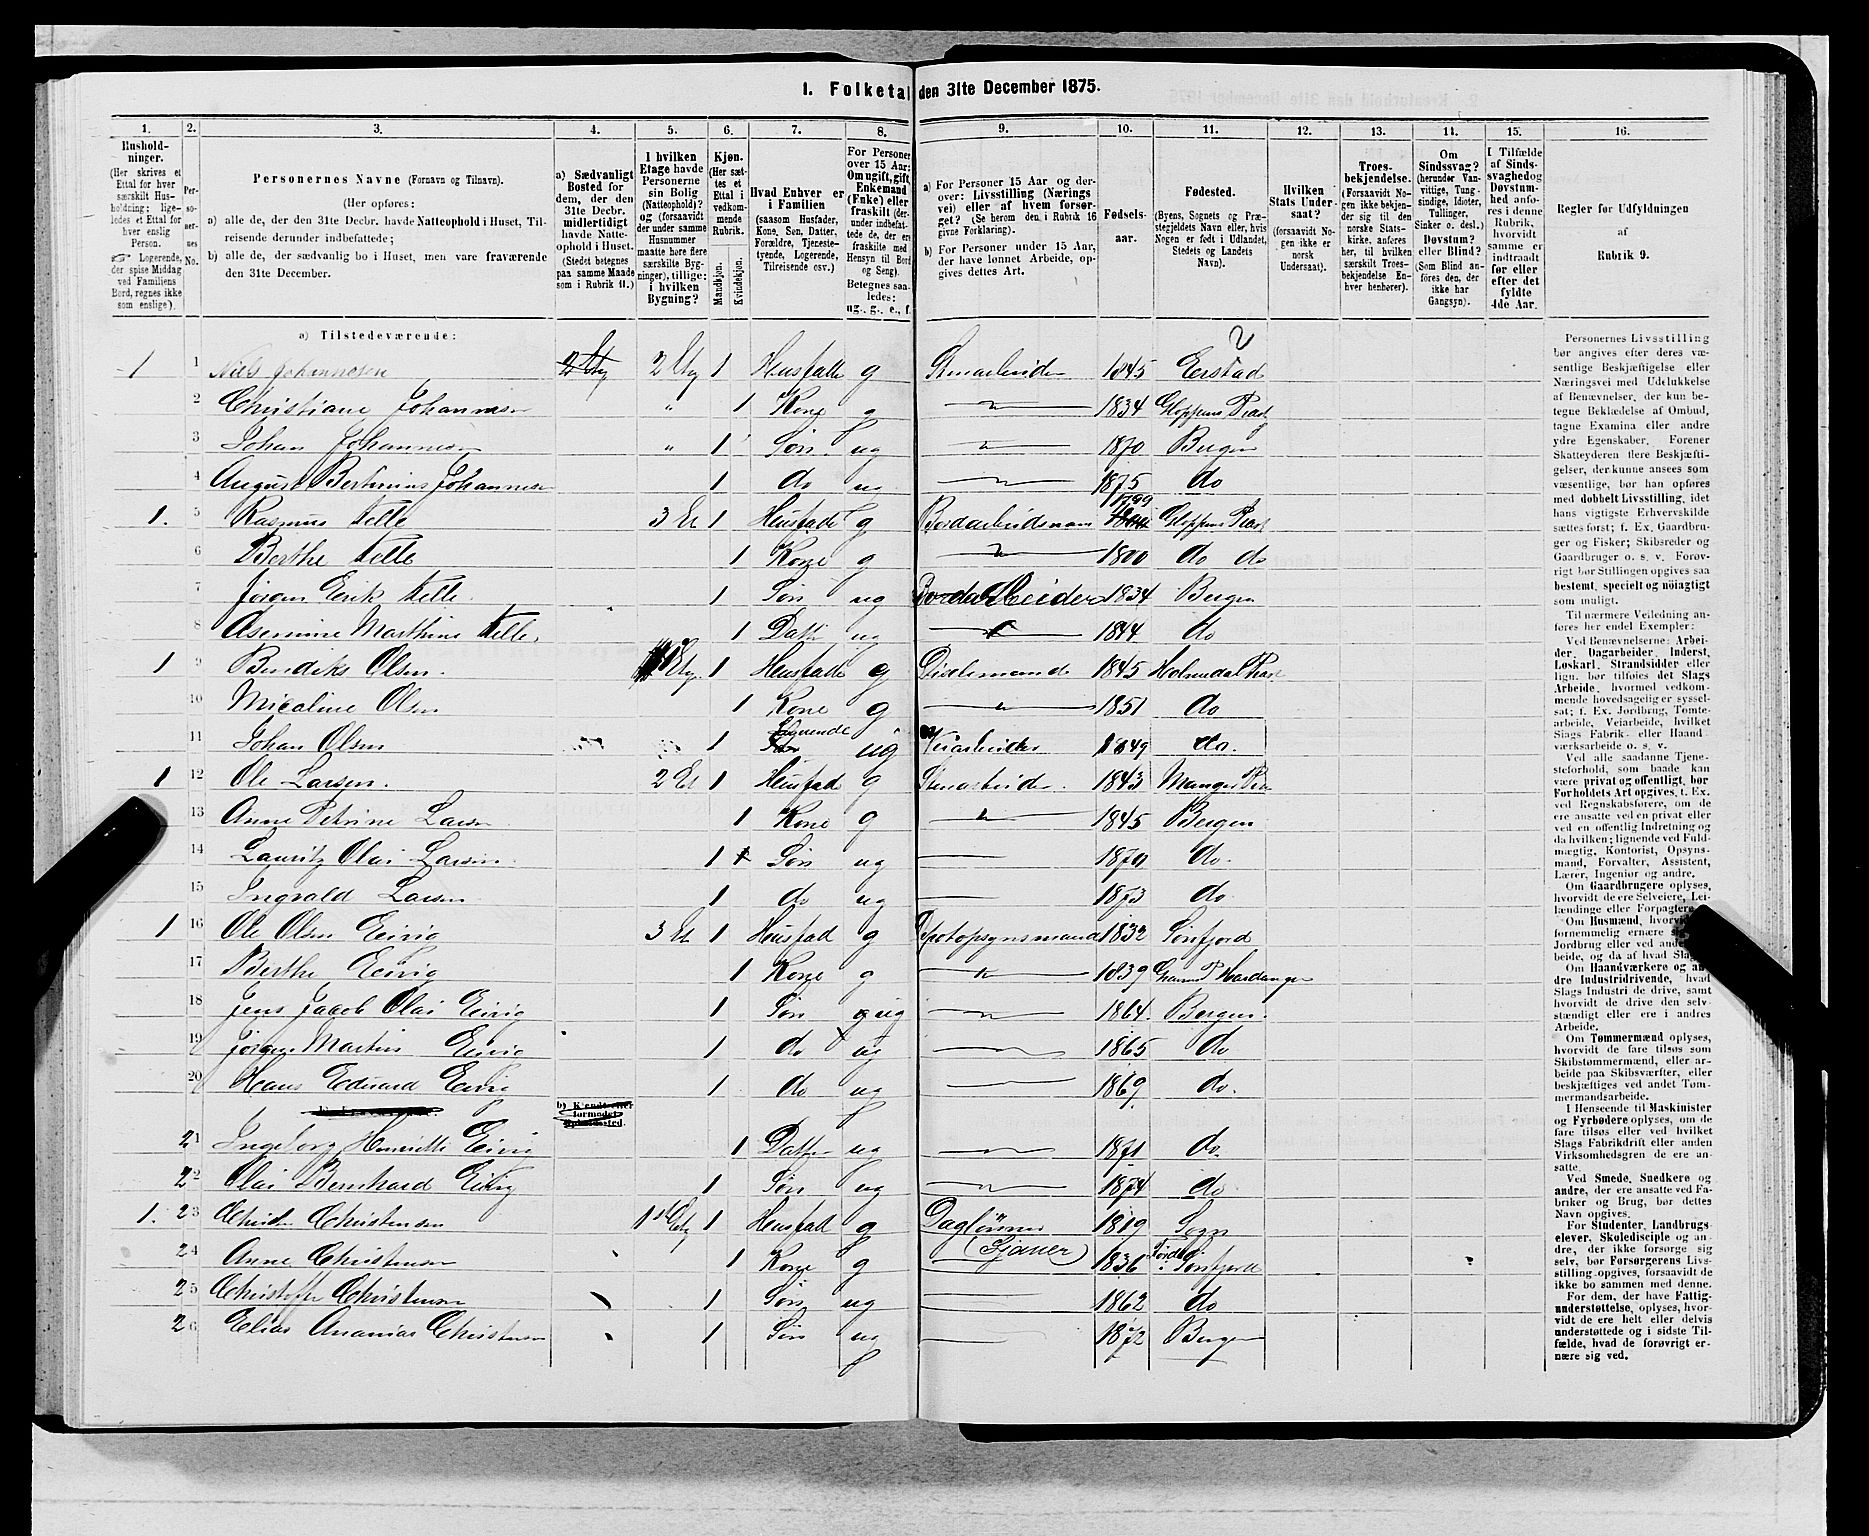 1. Folketal den 31te December 1875.
1. 2. 3. 4. 5. 6. 7. 8. 9. 10. 11. 12. 13. 14. 15. 16.
Husholdninger. (Her skrives et Ettal for hver særskilt Husholdning; ligeledes et Ettal for hver enslig Person. Logerende, der spise Middag ved Familiens Bord, regnes ikke som enslige).
Personernes No.
Personernes Navne (Fornavn og Tilnavn).
(Her opføres:
a) alle de, der den 31te Decbr. havde Natteophold i Huset, Tilreisende derunder indbefattede;
b) alle de, der sædvanlig bo i Huset, men vare fraværende den 31te December.
a) Sædvanligt Bosted for dem, der den 31te Decbr. midlertidigt havde Natteophold i Huset. (Stedet betegnes paa samme Maade som i Rubrik 11.)
I hvilken Etage havde Personerne sin Bolig (Natteophold)? og (forsaavidt der under samme Husnummer maatte høre flere særskilte Bygninger), tillige: i hvilken Bygning?
Kjøn. (Her sættes et Ettal i vedkommende Rubrik.
Mandkjøn. Kvindekjøn.
Hvad Enhver er i Familien (saasom Husfader, Kone, Søn, Datter, Forældre, Tjenestetyende, Logerende, Tilreisende osv.)
For Personer over 15 Aar: Om ugift, gift, Enkemand (Enke) eller fraskilt (derunder indbefattede de, der ere fraskilte med Hensyn til Bord og Seng). Betegnes saaledes: ug., g., e., f.
a) For Personer 15 Aar og derover: Livsstilling (Næringsvei) eller af hvem forsørget? (Se herom den i Rubrik 16 givne Forklaring).
b) For Personer under 15 Aar, der have lønnet Arbeide, opgives dettes Art.
Fødselsaar.
Fødested. (Byens, Sognets og Præstegjeldets Navn, eller hvis Nogen er født i Udlandet, Stedets og Landets Navn).
Hvilken Stats Undersaat? (forsaavidt Nogen ikke er norsk Undersaat).
Troesbekjendelse. (Forsaavidt Nogen ikke bekjender sig til den norske Statskirke, anføres her, til hvilken særskilt Troesbekjendelse Enhver henhører).
Om Sindssvag? (herunder Vanvittige, Tungsindige, Idioter, Tullinger, Sinker o. desl.) Døvstum? eller Blind? (Som Blind anføres den, der ikke har Gangsyn).
I Tilfælde af Sindssvaghed og Døvstumhed anføres i denne Rubrik, hvorvidt samme er indtraadt før eller efter det fyldte 4de Aar.
Regler for Udfyldningen af Rubrik 9.
a) Tilstedeværende:
1 1 Niels Johannesen 2 Etg 2 Etg 1 Husfader g Stenarbeider 1845 Eerstad
2 Christiane Johannesen " 1 Kone g " 1834 Gloppens Præst
3 Johan Johannesen " 1 Søn ug " 1870 Bergen
4 August Bertinius Johannesen 1 do ug " 1875 do
1. 5 Rasmus Felle 3 Et 1 Husfader g Bordarbeidsman 1799 Gloppens Præst
6 Berthe Felle 1 Kone g " 1800 do do
7 Jørgen Erik Felle. 1 Søn ug Bordarbeider 1834 Bergen
8 Asermine Marthine Felle. 1 Datt ug 1844. do
1 9 Bendiks Olsen. 1 Etg. 1 Husfader g Dixelsmand 1845 Holmedal Præst
10 Micaline Olsen 1 Kone g " 1851 do
11 Johan Olsen 1 Logerende ug Veiarbeider 1849 do.
1 12 Ole Larsen. 2 Et 1 Husfad g Stenarbeider. 1843 Manger Præ
13 Anne Petrine Larsen 1 Kone g " 1845 Bergen
14 Lauritz Olai Larsen 1 Søn ug 1870 do.
15 Ingvald Larsen 1 do ug 1873 do
1 16 Ole Olsen Eivig 3 Et 1 Husfad g Depotopsynsmand 1832 Sønfjord
17 Berthe Eivig 1 Kone g " 1839 P Hardanger
18 Jens Jacob Olai Eivig 1 Søn ug " 1864. Bergen.
19 Jørgen Martin Eivig 1 do ug 1865 do
20 Hans Eduard Eivig 1 do ug 1869 do.
b) Kjendt eller formodet Opholdssted.
21 Ingeborg Henritte Eivig 1 Datter ug 1871 do.
22 Olai Bernhard Eivig 1 Søn ug 1874 do
1. 23 Christen Christensen 1ste Etg 1 Husfad g Daglønner (Gjøvær) 1819 Sogn
24 Anne Christensen 1 Kone g 1836 Førde P. Sønfjord
25 Christoffer Christensen 1 Søn ug 1862 do
26 Elias Ananias Christensen 1 Søn ug 1872 Bergen
Personernes Livsstilling bør angives efter deres væsentlige Beskjæftigelse eller Næringsvei med Udelukkelse af Benævnelser, der kun betegne Beklædelse af Ombud, tagne Examina eller andre ydre Egenskaber. Forener Skatteyderen flere Beskjæftigelser, der kunne ansees som væsentlige, bør han opføres med dobbelt Livsstilling, idet hans vigtigste Erhvervskilde sættes først; f. Ex. Gaardbruger og Fisker; Skibsreder og Gaardbruger o. s. v. Forøvrigt bør Stillingen opgives saa bestemt, specielt og nöiagtigt som muligt.
Til nærmere Veiledning anføres her endel Exempler:
Ved Benævnelserne: Arbeider, Dagarbeider, Inderst, Løskarl, Strandsidder eller lign. bør tilføies det Slags Arbeide, hvormed vedkommende hovedsagelig er sysselsat; f. Ex. Jordbrug, Tømtearbeide, Veiarbeide, hvilket Slags Fabrik- eller Haandværksarbeide o. s. v.
Ved alle saadanne Tjenesteforhold, som baade kan være privat og offentligt, bør Forholdets Art opgives, t. Ex. ved Regnskabsførere, om de ere ansatte ved en privat eller ved en offentlig Indretning og da hvilken; lignende ved Fuldmægtig, Kontorist, Opsynsmand, Forvalter, Assistent, Lærer, Ingeniør og andre.
Om Gaardbrugere oplyses, hvorvidt de ere Selveiere, Leilændinge eller Forpagtere
Om Husmænd, hvorvidt fornemmelig ernære Jordbrug eller ved andet beide, og da af hvad Slags
Om Haandværkere og andre Industridrivende, hvad Slags Industri de drive, samt hvorvidt de drive den selvstændigt eller ere i andres Arbeide.
Om Tømmermænd oplyses, hvorvidt de fare tilsøs som Skibstømmermænd, eller arbeide paa Skibsværfter, eller beskjæftiges ved andet Tømmermandsarbeide.
I Henseende til Maskinister og Fyrbødere oplyses, om de fare tilsøs eller ved hvilket Slags Fabrikdrift eller anden Virksomhedsgren de ere ansatte.
Ved Smede, Snedkere og andre, der ere ansatte ved Fabriker og Brug, bør dettes Navn opgives.
For Studenter, Landbrugselever, Skoledisciple og andre, der ikke forsørge sig selv, bør Forsørgerens Livsstilling opgives, forsaavidt de ikke bo sammen med denne.
For dem, der have Fattigunderstøttelse, oplyses, hvorvidt de ere helt eller delvis understøttede og i sidste Tilfælde, hvad de forøvrigt ernære sig ved.